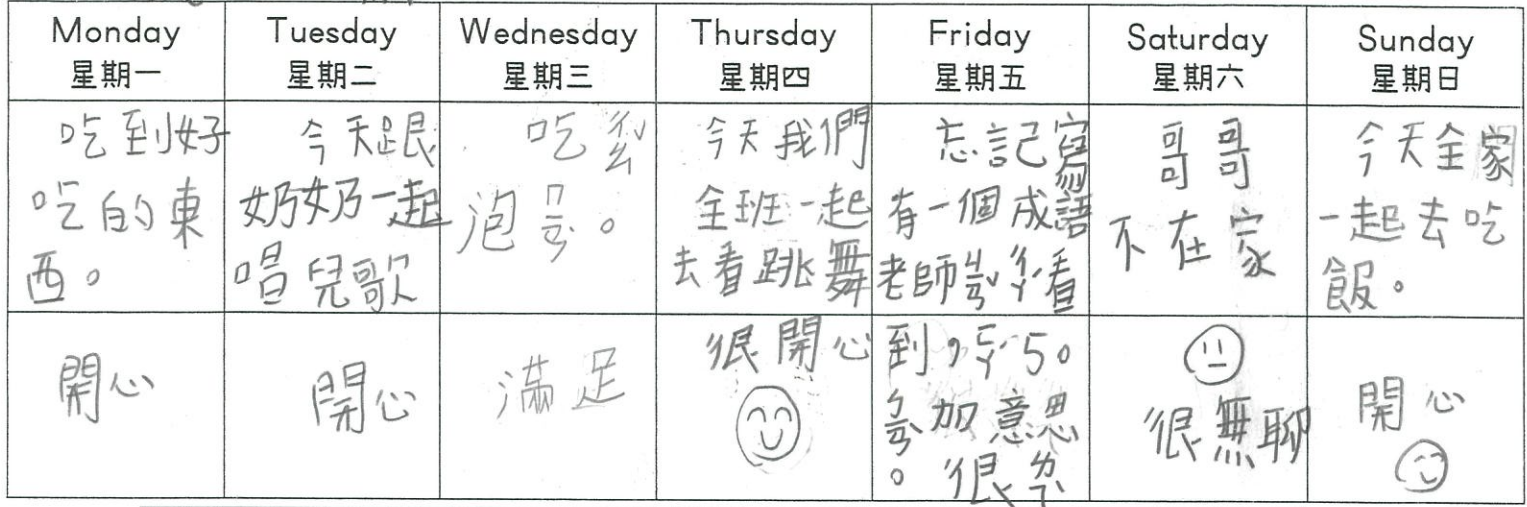 Monday
星期一
Tuesday
星期二
Wednesday
星期三
Thursday
星期四
Friday
星期五
Saturday
星期六
Sunday
星期日
吃到好
吃的東
西。
今天跟
奶奶一起
唱兒歌
吃
泡
今天我們
全班一起
去看跳舞
忘記寫
有一個成語
老師 看
哥哥
不在家
今天全家
一起去吃
飯。
開心
開心
滿足
很開心
到
加意思
。很
很無聊
開心